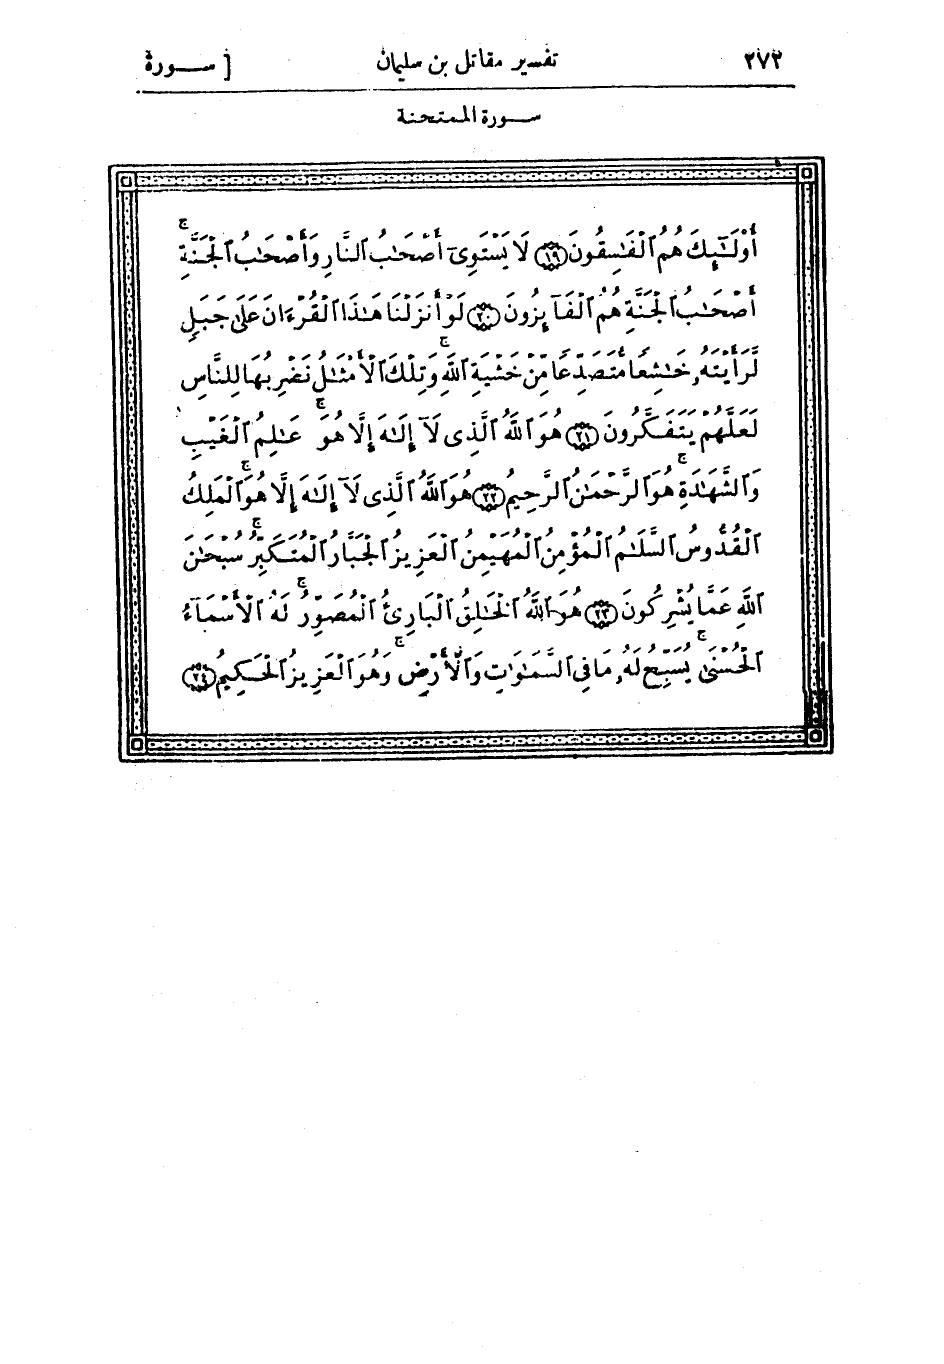 ٢٧٢ تفسير مقاتل بن سليمان [ ســورة
ســورة الممتحنة
أُوْلَـٰٓئِكَ هُمُ ٱلْفَـٰسِقُونَ ١٩ لَا يَسْتَوِىٓ أَصْحَـٰبُ ٱلنَّارِ وَأَصْحَـٰبُ ٱلْجَنَّةِ ۚ
أَصْحَـٰبُ ٱلْجَنَّةِ هُمُ ٱلْفَآئِزُونَ ٢٠ لَوْ أَنزَلْنَا هَـٰذَا ٱلْقُرْءَانَ عَلَىٰ جَبَلٍ
لَّرَأَيْتَهُۥ خَـٰشِعًا مُّتَصَدِّعًا مِّنْ خَشْيَةِ ٱللَّهِ ۚ وَتِلْكَ ٱلْأَمْثَـٰلُ نَضْرِبُهَا لِلنَّاسِ
لَعَلَّهُمْ يَتَفَكَّرُونَ ٢١ هُوَ ٱللَّهُ ٱلَّذِى لَآ إِلَـٰهَ إِلَّا هُوَ ۖ عَـٰلِمُ ٱلْغَيْبِ
وَٱلشَّهَـٰدَةِ ۚ هُوَ ٱلرَّحْمَـٰنُ ٱلرَّحِيمُ ٢٢ هُوَ ٱللَّهُ ٱلَّذِى لَآ إِلَـٰهَ إِلَّا هُوَ ۚ ٱلْمَلِكُ
ٱلْقُدُّوسُ ٱلسَّلَـٰمُ ٱلْمُؤْمِنُ ٱلْمُهَيْمِنُ ٱلْعَزِيزُ ٱلْجَبَّارُ ٱلْمُتَكَبِّرُ ۚ سُبْحَـٰنَ
ٱللَّهِ عَمَّا يُشْرِكُونَ ٢٣ هُوَ ٱللَّهُ ٱلْخَـٰلِقُ ٱلْبَارِئُ ٱلْمُصَوِّرُ ۚ لَهُ ٱلْأَسْمَآءُ
ٱلْحُسْنَىٰ ۚ يُسَبِّحُ لَهُۥ مَا فِى ٱلسَّمَـٰوَٰتِ وَٱلْأَرْضِ ۚ وَهُوَ ٱلْعَزِيزُ ٱلْحَكِيمُ ٢٤